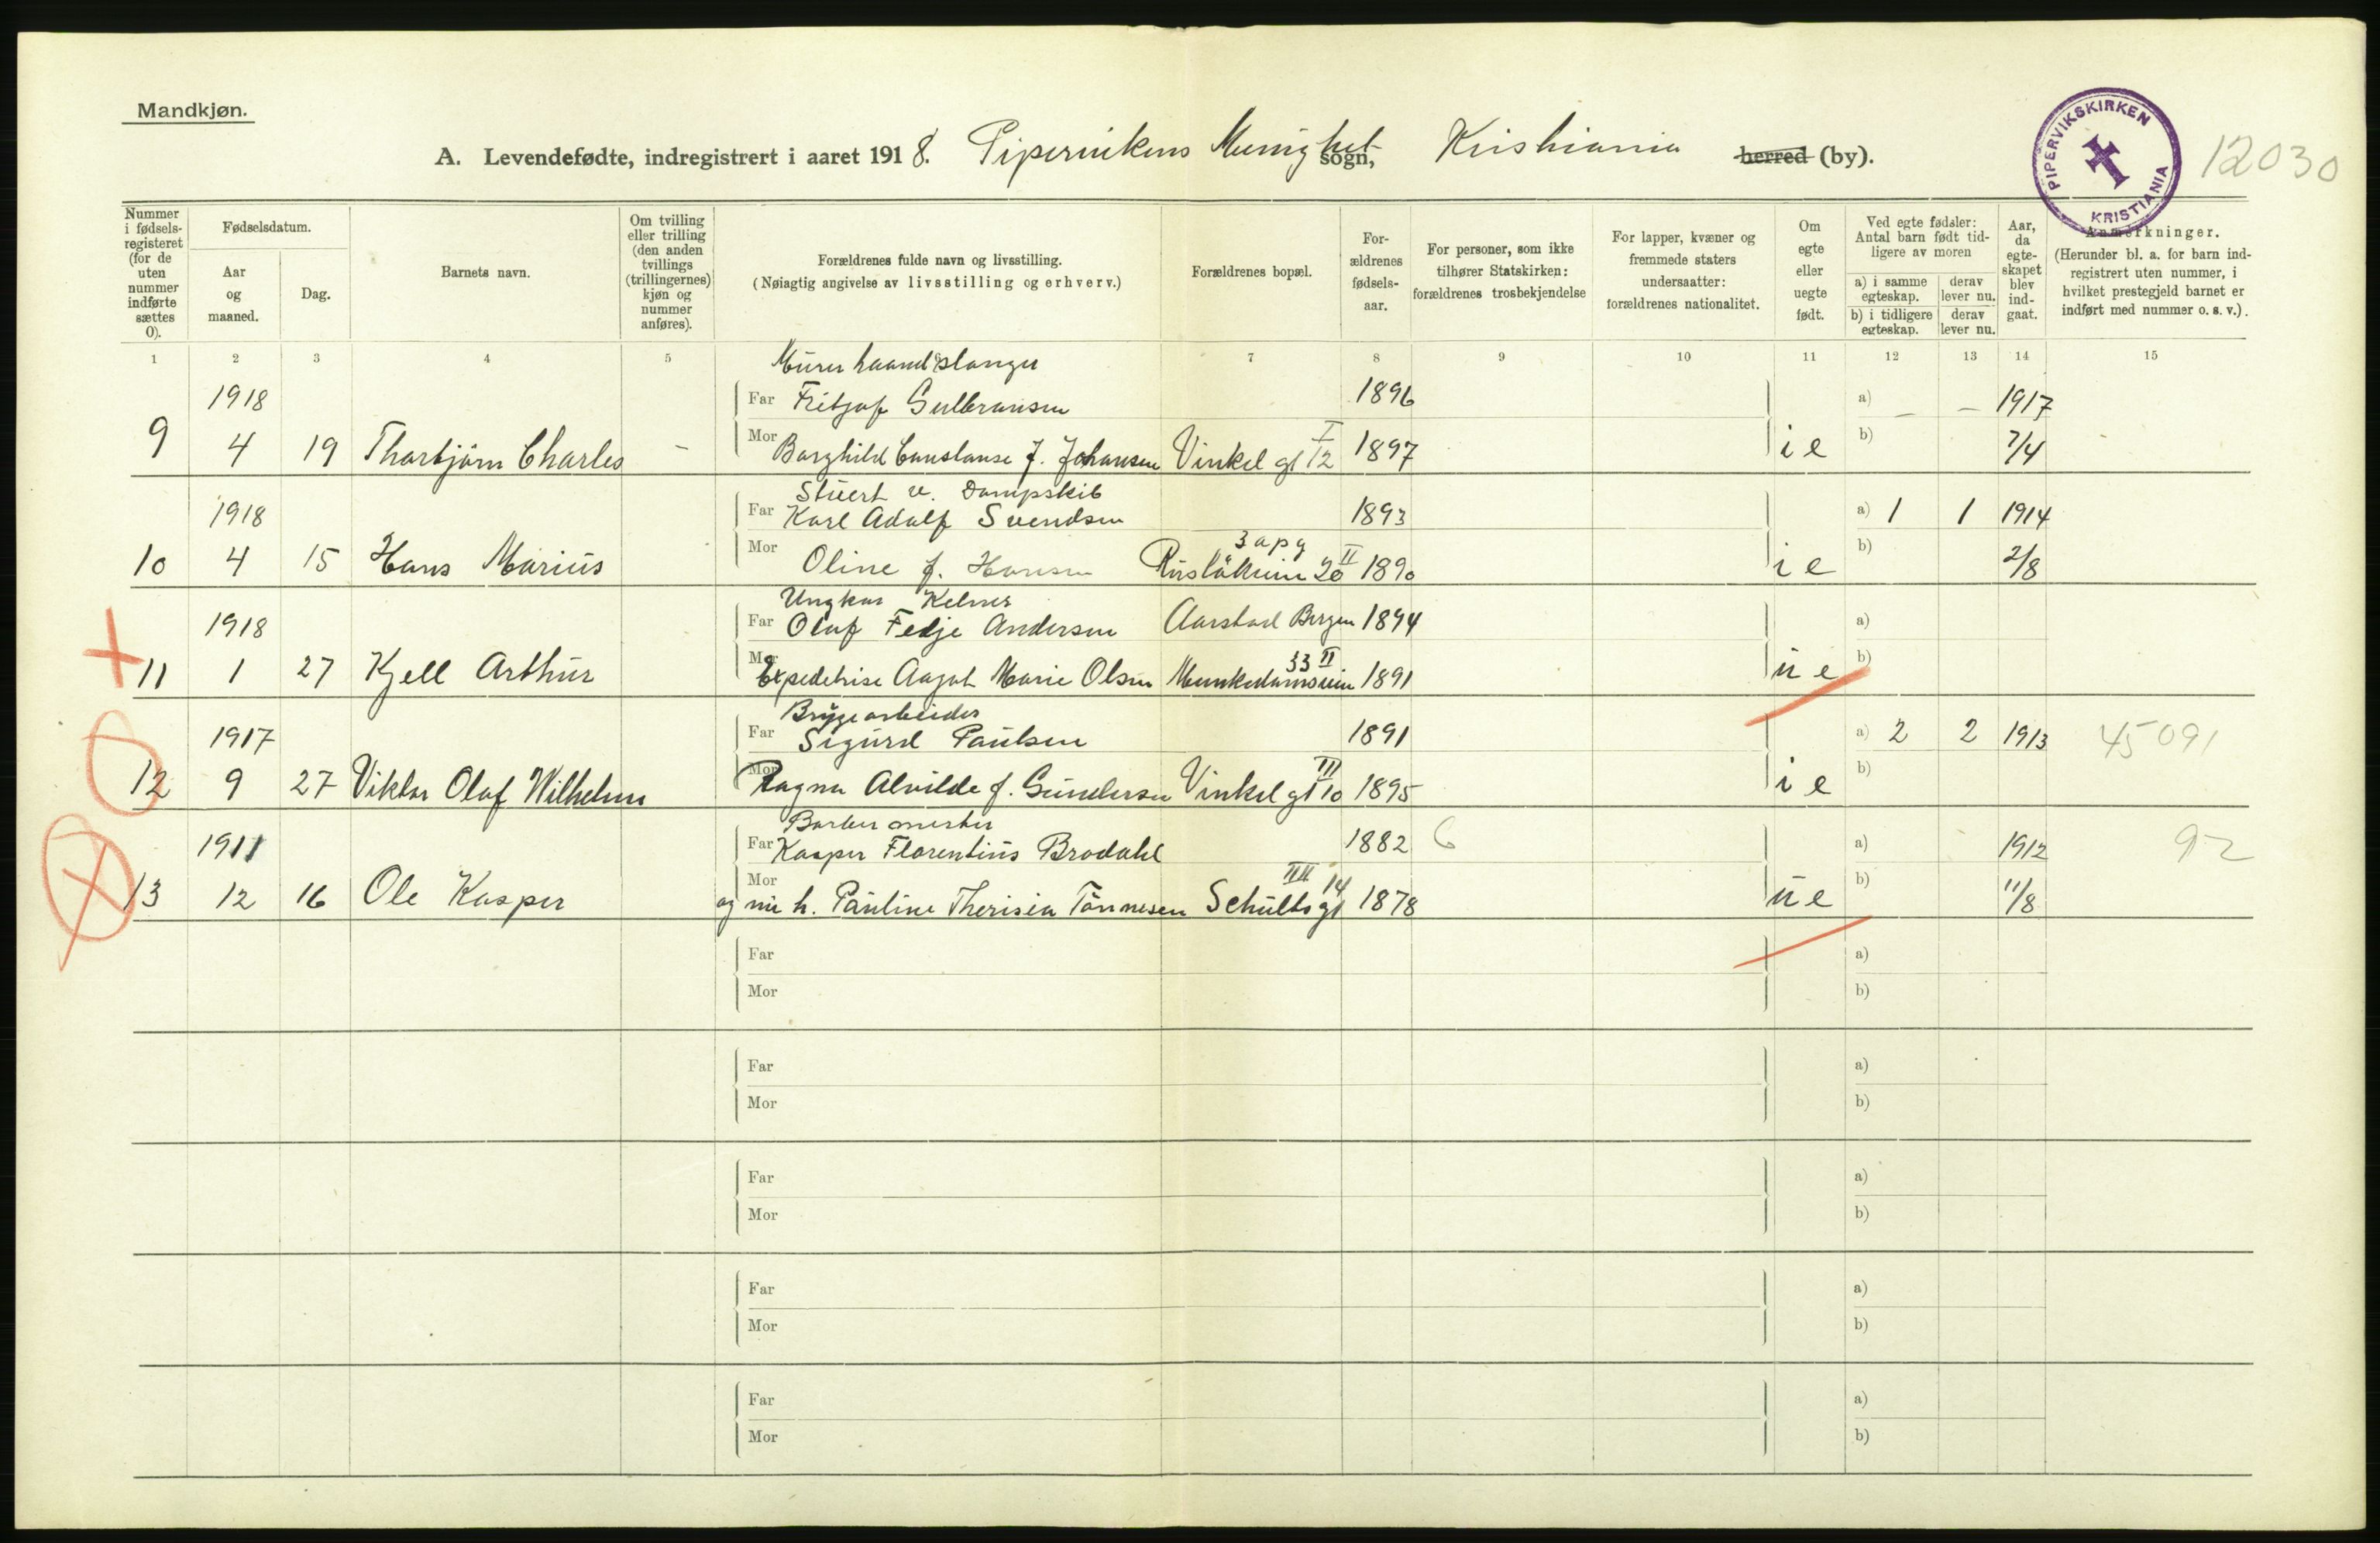 Mandkjøn.
A. Levendefødte, indregistrert i aaret 1918. Pipervikens Menighet sogn, Kristiania herred (by).
PIPERVIKSKIRKEN KRISTIANIA
12030
Nummer i fødselsregisteret (for de uten nummer indførte sættes 0).
Fødselsdatum.
Aar og maaned.
Dag.
Barnets navn.
Om tvilling eller trilling (den anden tvillings (trillingernes) kjøn og nummer anføres).
Forældrenes fulde navn og livsstilling.
(Nøiagtig angivelse av livsstilling og erhverv.)
Forældrenes bopæl.
Forældrenes fødselsaar.
For personer, som ikke tilhører Statskirken: forældrenes trosbekjendelse
For lapper, kvæner og fremmede staters undersaatter: forældrenes nationalitet.
Om egte eller uegte født.
Ved egte fødsler: Antal barn født tidligere av moren
a) i samme egteskap.
derav lever nu.
b) i tidligere egteskap.
derav lever nu.
Aar, da egteskapet blev indgaat.
Anmerkninger.
(Herunder bl. a. for barn indregistrert uten nummer, i hvilket prestegjeld barnet er indført med nummer o. s. v.).
1 2 3 4 5 6 7 8 9 10 11 12 13 14 15
Murer haandslanger
1918 Far Fritjof Gulbransen 1896 a) – – 1917
9 4 19 Thorbjørn Charles – Mor Borghild Constanse f. Johansen Vinkel gt 12 I 1897 ie b) 7/4
Stuert v. Dampskib
1918 Far Karl Adolf Svendsen 1893 a) 1 1 1914
3 apg
10 4 15 Hans Marius Mor Oline f. Hansen 20 II 1890 ie b) 2/8
Ungkar Kelner
1918 Far Oluf Fedje Andersen Aarstad Bergen 1894 a)
33 II
11 1 27 Kjell Arthur Mor Expeditrise Aagot Marie Olsen Munkedamsvein 1891 ue b)
Bryggearbeider
1917 Far Sigurd Paulsen 1891 a) 2 2 1913 45091
12 9 27 Viktor Olaf Wilhelm Mor Ragna Alvilde f. Gundersen Vinkel gt 10 III 1895 ie b)
Barber mester
1911 Far Kasper Florentius Brodahl 1882 6 a) 1912 92
IIII 14
13 12 16 Ole Kasper Mor og nu h. Pauline Therisia Tønnesen Schultsgt 1878 ue b) 11/8
Far a)
Mor b)
Far a)
Mor b)
Far a)
Mor b)
Far a)
Mor b)
Far a)
Mor b)